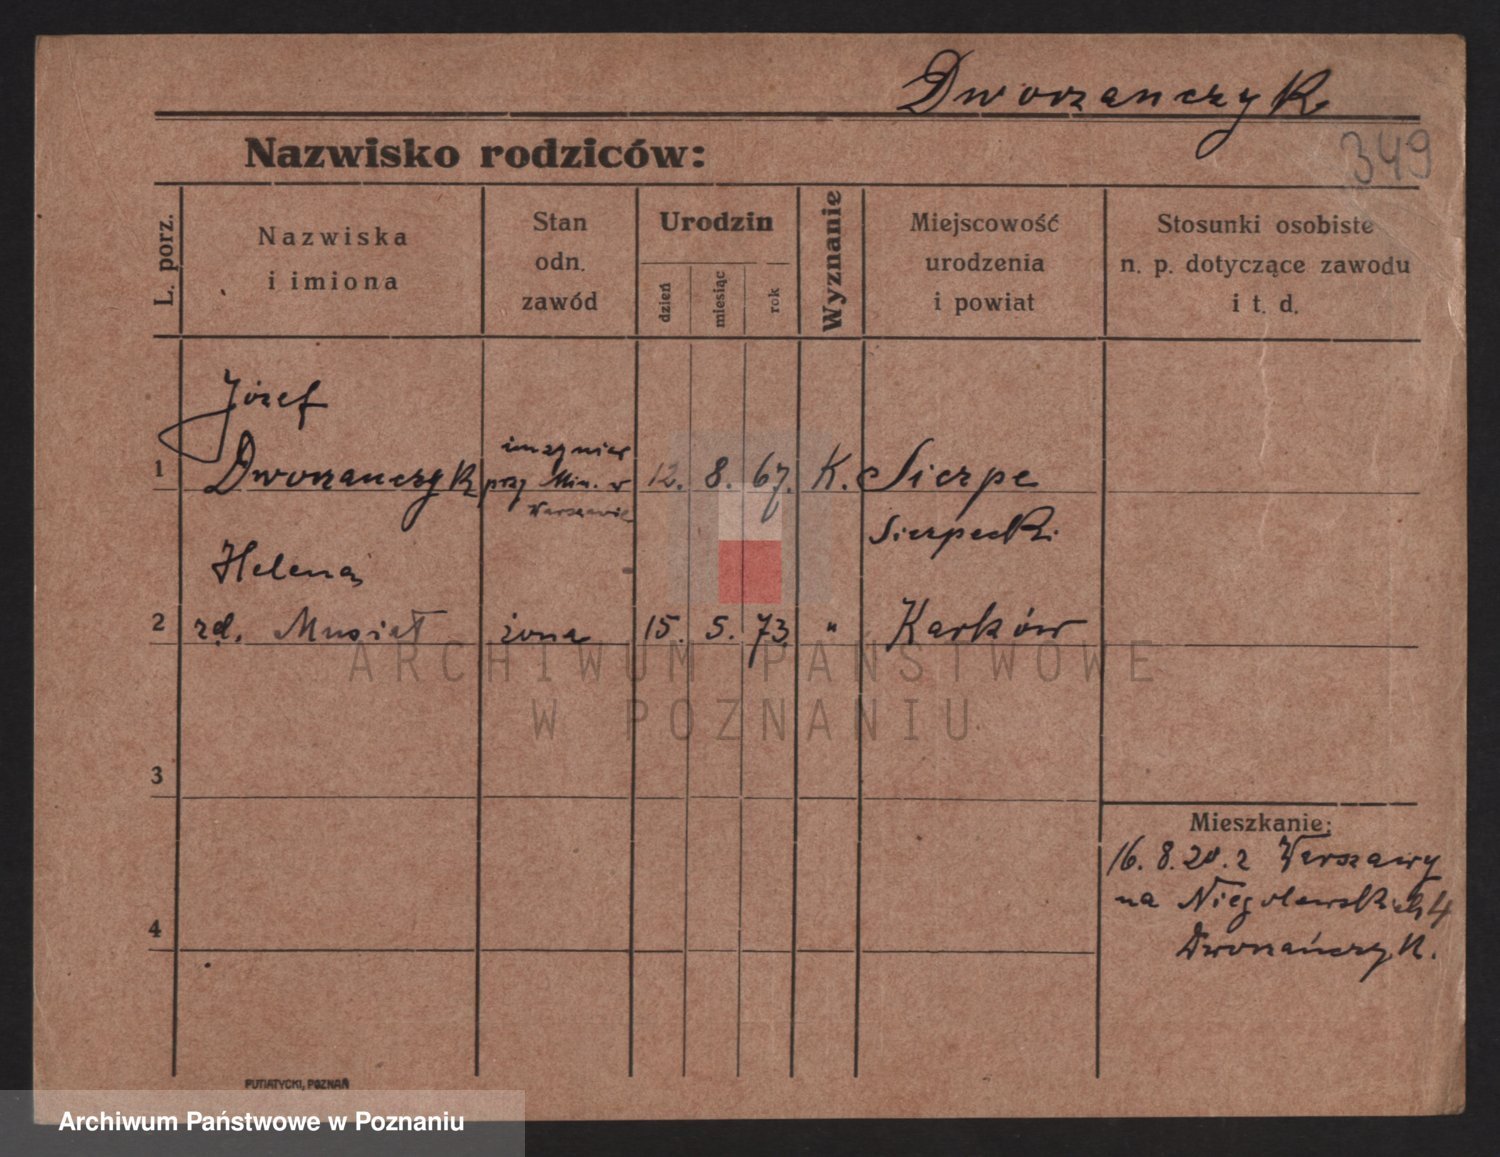 Dworzanczyk
349
Nazwisko rodziców:
L. porz.
Nazwiska
i imiona
Stan
odn.
zawód
Urodzin
dzień
miesiąc
rok
Wyznanie
Miejscowość
urodzenia
i powiat
Stosunki osobiste
n. p. dotyczące zawodu
i t. d.
Józef
1 Dworzanczyk
inżynier
przy Min. w
Warszawie
12. 8. 67. K. Sierpc
Sierpecki
Helena
2 zd. Musiał żona 15. 5. 73. " Karków
ARCHIWUM PAŃSTWOWE
W POZNANIU
3
Mieszkanie:
16. 8. 20. z Warszawy
na Niegolewskich 4
Dworzańczyk.
4
PUTIATYCKI, POZNAŃ
Archiwum Państwowe w Poznaniu